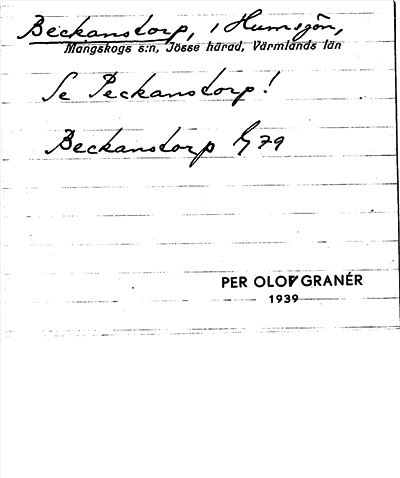 Beckanstorp, i Humsjön,
Mangskogs s:n, Jösse härad, Värmlands län
Se Peckanstorp!
Beckanstorp 79
PER OLOF GRANÉR
1939